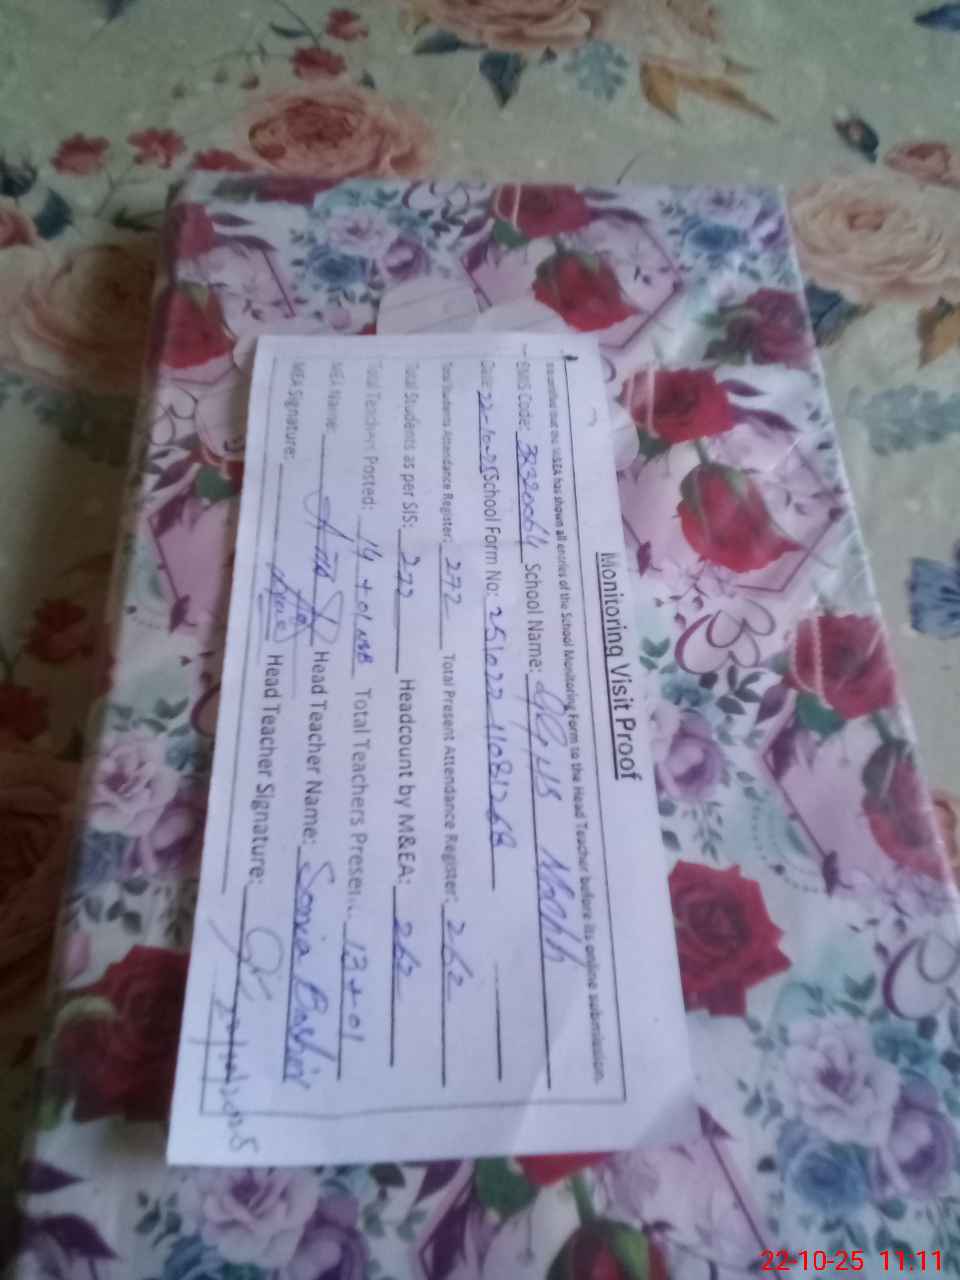 Monitoring Visit Proof
It is certified that the M&EA has shown all entries of the School Monitoring Form to the Head Teacher before its online submission.
EMIS Code: School Name:
Date: 22-10-25 School Form No: 25102211081268
Total Students Attendance Register: 272 Total Present Attendance Register: 262
Total Students as per SIS: 272 Headcount by M&EA: 262
Total Teachers Posted: 14 + 01 Total Teachers Present: 13 + 01
MEA Name: Head Teacher Name: Sonia Bashir
MEA Signature: Head Teacher Signature:
22-10-25 11.11